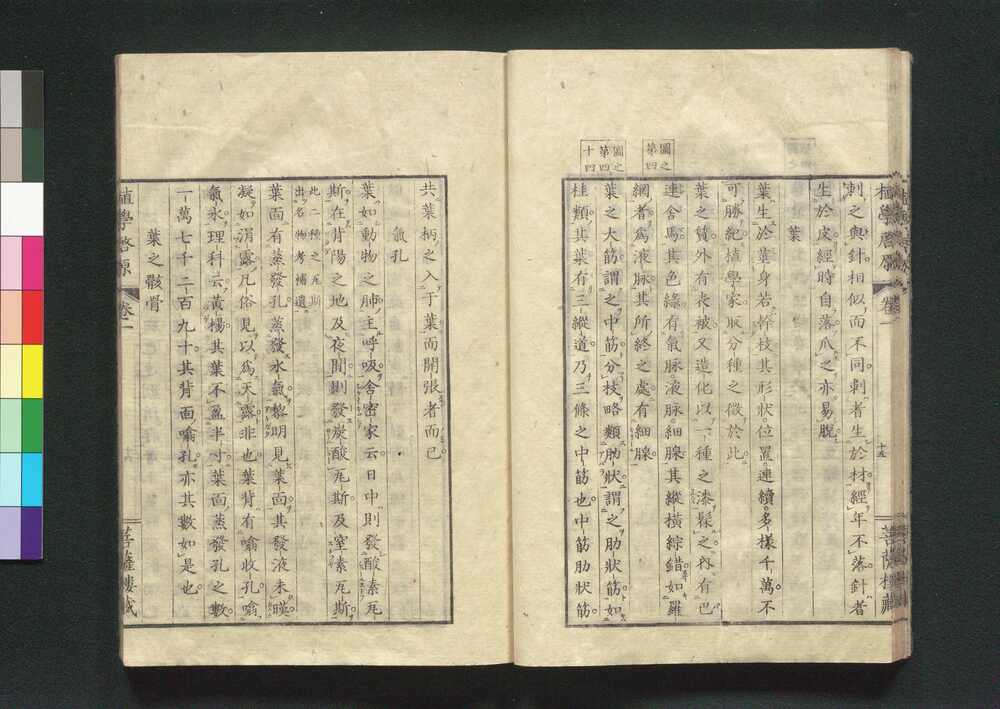 圖之
第四
圖之
第四
十四
刺之與針相似而不同刺者生於材經年不落針者
生於皮經時自落爪之亦易脫
葉
葉生於莖身若幹枝其形狀位置連續多樣千萬不
可勝紀植學家取分種之徵於此
葉之質外有衣被又造化以一種之漆髹之內有巴
連舍馬其色綠有氣脉液脉細腺其縱橫綜錯如羅
網者爲液脉其所終之處有細腺
葉之大筋謂之中筋分枝略類肋狀謂之肋狀筋如
桂類其葉有三縱道乃三條之中筋也中筋肋狀筋
植學啓原
卷一
十五
菩薩樓藏
共葉柄之入于葉而開張者而已
氣孔
葉如動物之肺主呼吸舍密家云日中則發酸素瓦
斯在背陽之地及夜間則發炭酸瓦斯及窒素瓦斯
此二種之瓦斯
出名物考補遺
葉面有蒸發孔蒸發水氣黎明見葉面其發液未暵
凝如涓露凡俗見以爲天露非也葉背有噏收孔噏
氣水理科云黃楊其葉不盈半寸葉面蒸發孔之數
一萬七千二百九十其背面噏孔亦其數如是也
葉之骸骨
植學啓原
卷一
菩薩樓藏